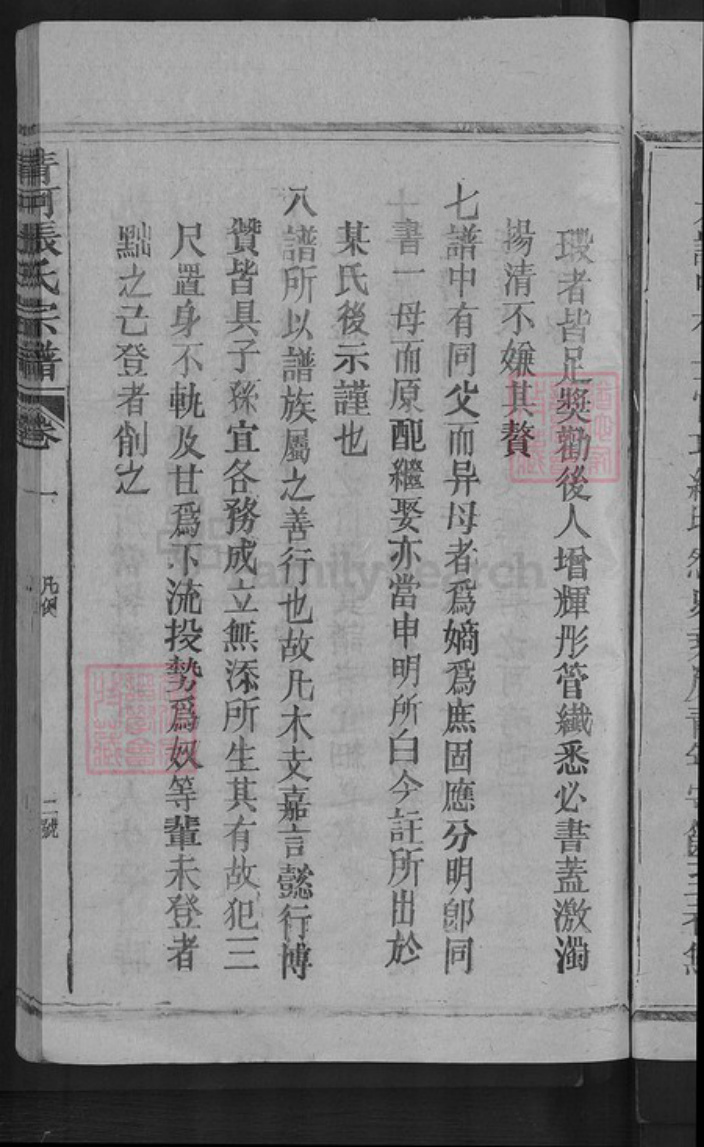 瑕者皆足獎勸後人增輝彤管纖悉必書蓋激濁
揚清不嫌其贅
七譜中有同父而异母者爲嫡爲庶固應分明卽同
書一母而原配繼娶亦當申明所自今註所出於
某氏後示謹也
八譜所以譜族屬之善行也故凡木支嘉言懿行博
贊皆具子孫宜各務成立無忝所生其有故犯三
尺置身不軌及甘爲下流投勢爲奴等輩未登者
黜之已登者削之
清河張氏宗譜
卷一
凡例
二號
FamilySearch